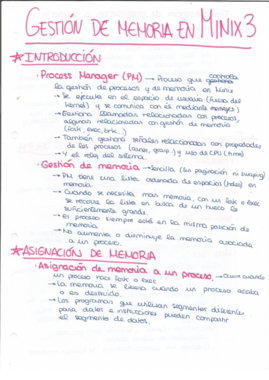 GESTIÓN DE MEMORIA EN MINIX3
* INTRODUCCIÓN
· Process Manager (PM) → Proceso que controla
la gestión de procesos y de memoria en Minix
→ Se ejecuta en el espacio de usuario (fuera del
kernel) y se comunica con él mediante mensajes
→ Gestiona llamadas relacionadas con procesos,
algunas relacionadas con gestión de memoria
(fork, exec, brk..)
→ También gestiona señales relacionadas con propiedades
de los procesos y uso de CPU (time)
→ Y el reloj del sistema.
· Gestión de memoria → Sencilla (sin paginación ni swapping)
→ PM tiene una lista ordenada de espacios (holes) en
memoria.
→ Cuando se necesita más memoria, con un fork o exec
se recorre la lista en busca de un hueco lo
suficientemente grande.
→ El proceso siempre está en la misma posición de
memoria.
→ No aumenta o disminuye la memoria asociada
a un proceso.
* ASIGNACIÓN DE MEMORIA
· Asignación de memoria a un proceso → Ocurre cuando
un proceso hace fork o exec
→ La memoria se libera cuando un proceso acaba
o es destruido.
→ Los programas que utilizan segmentos diferentes
para datos e instrucciones pueden compartir
el segmento de datos.